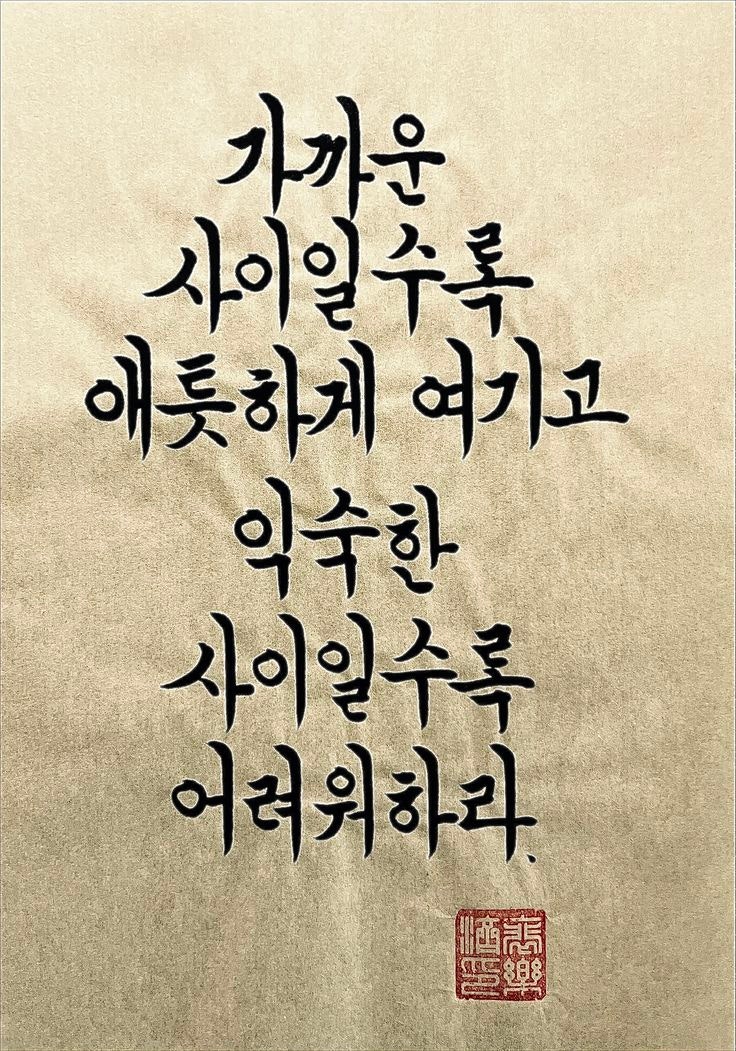 가까운
사이일수록
애틋하게 여기고
익숙한
사이일수록
어려워하라.